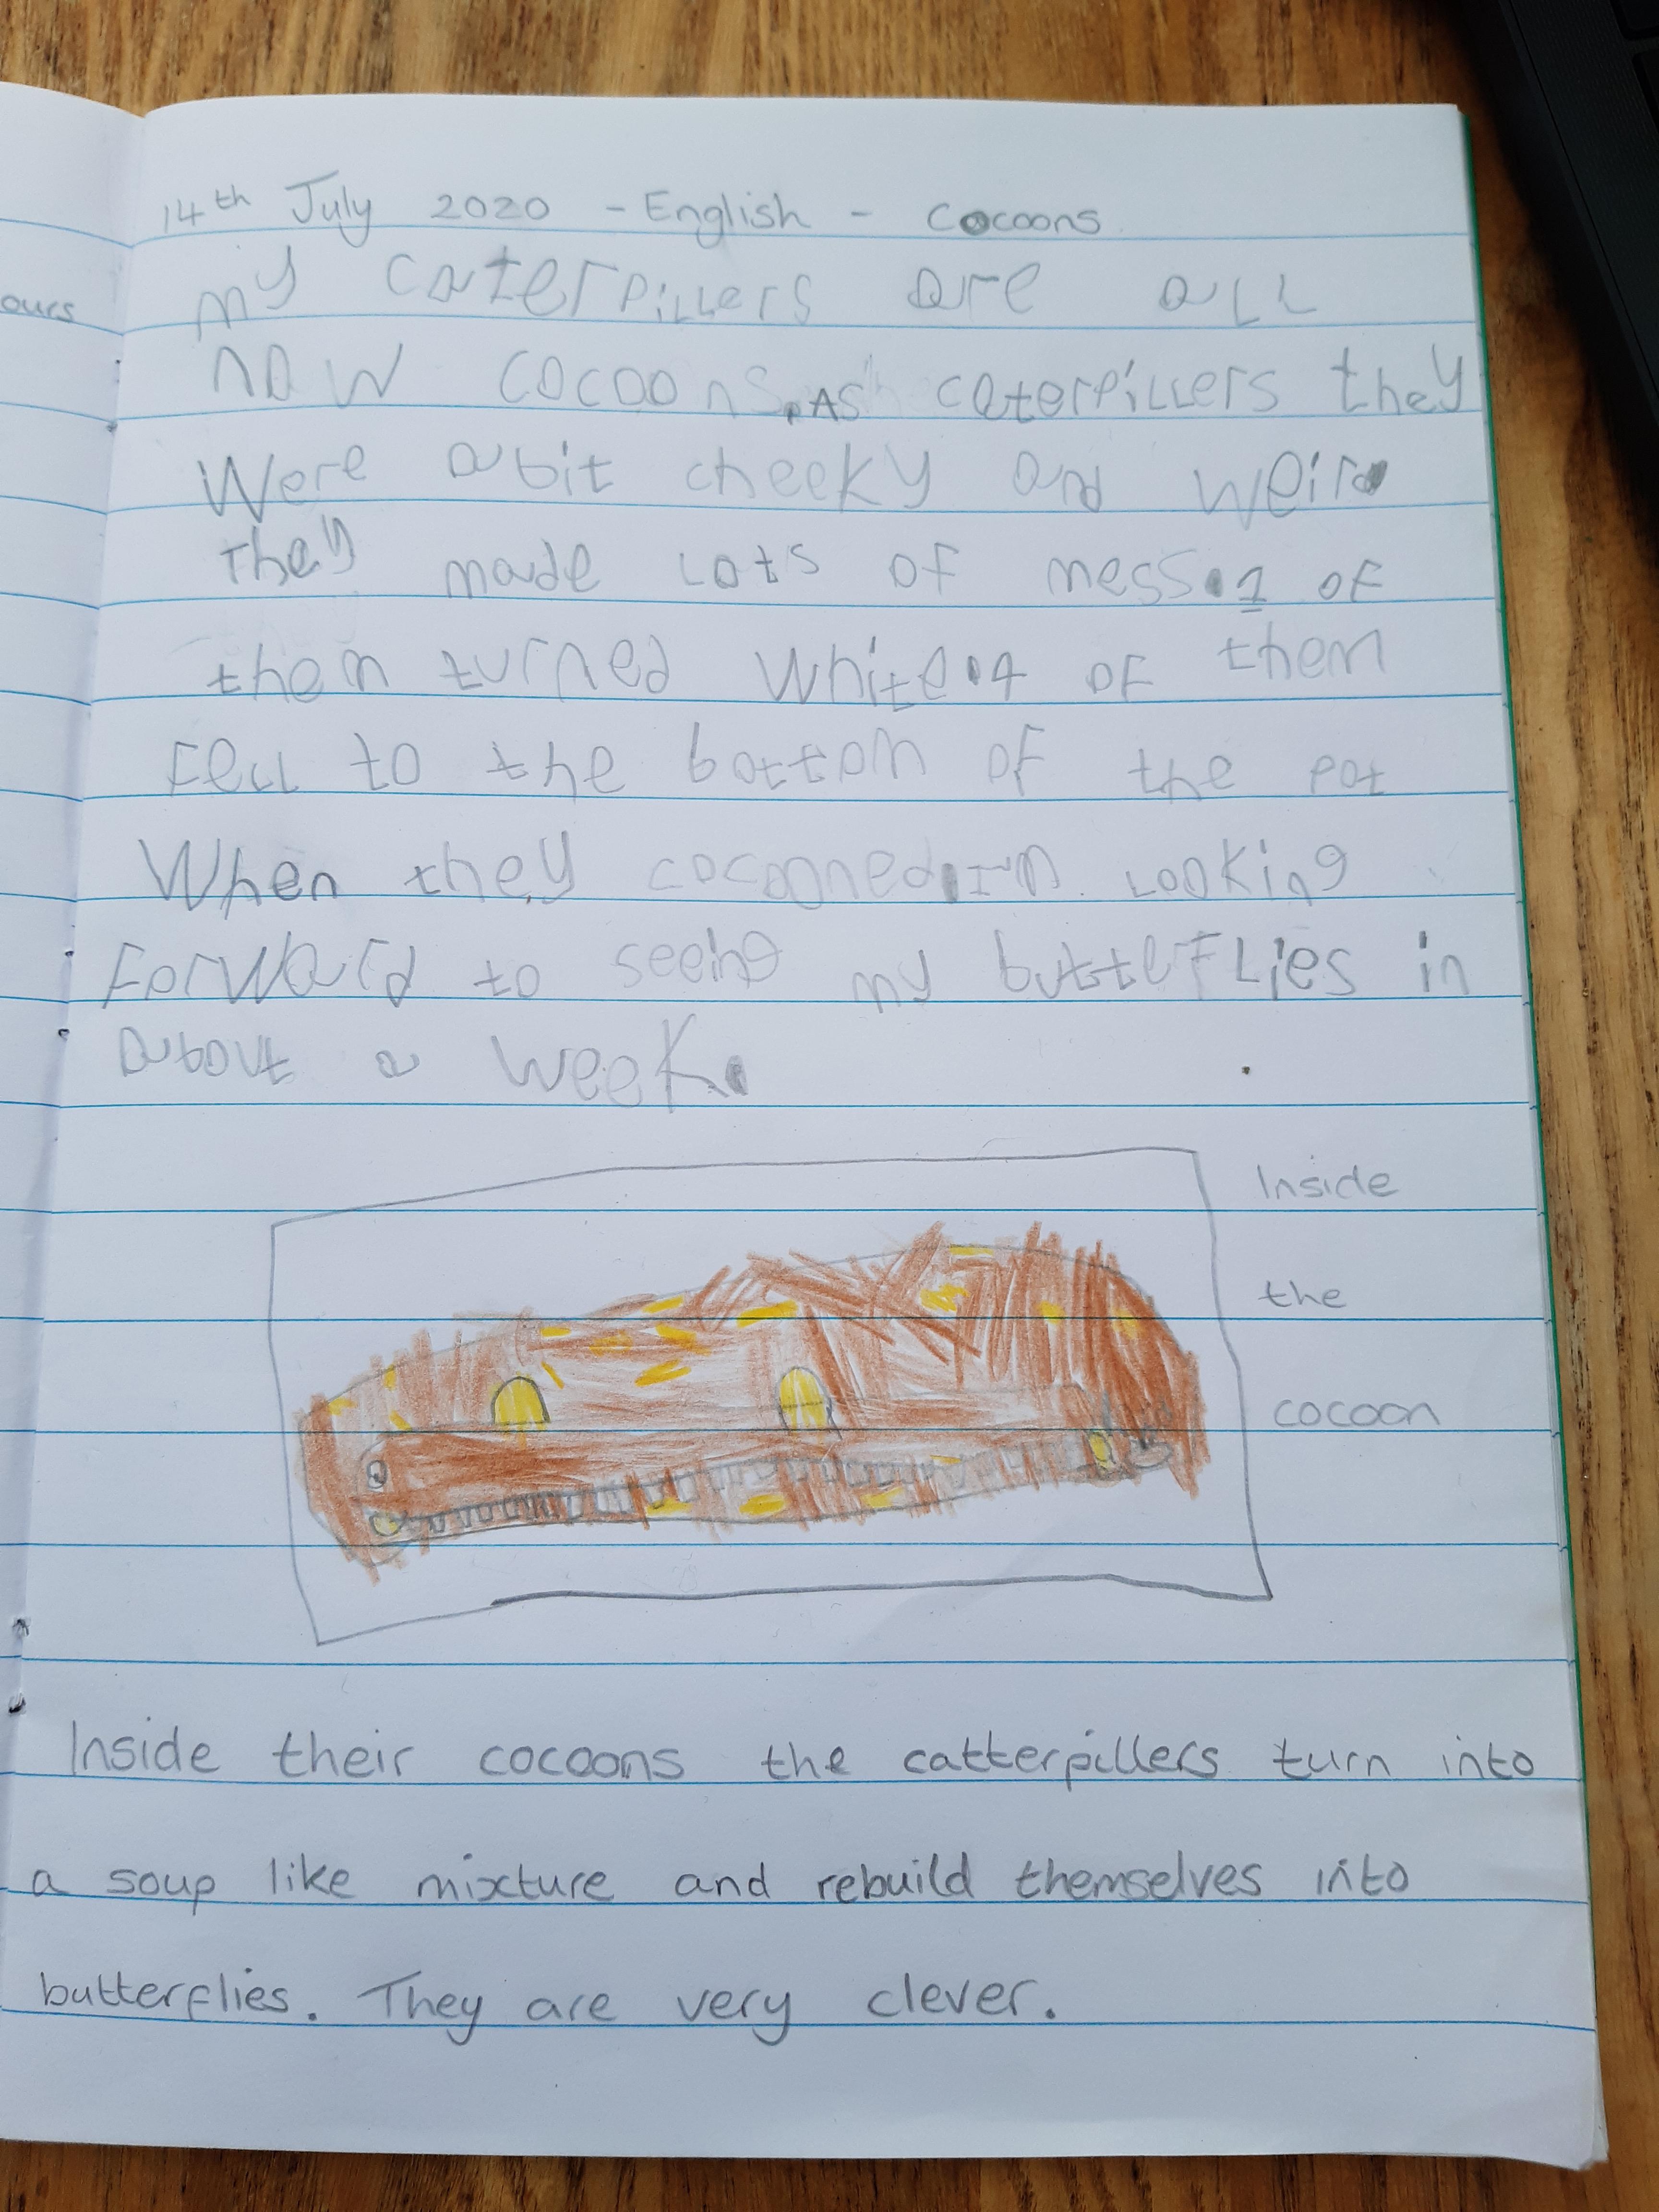 14th July 2020 - English - Cocoons
ours
my caterpillers are all
now cocoons. As caterpillers they
Were a bit cheeky and weird
They made lots of mess. 1 of
them turned white. 4 of them
fell to the bottom of the pot
When they cocooned. I'm looking
forward to seeing my butterflies in
about a week.
Inside
the
cocoon
Inside their cocoons the catterpillers turn into
a soup like mixture and rebuild themselves into
butterflies. They are very clever.